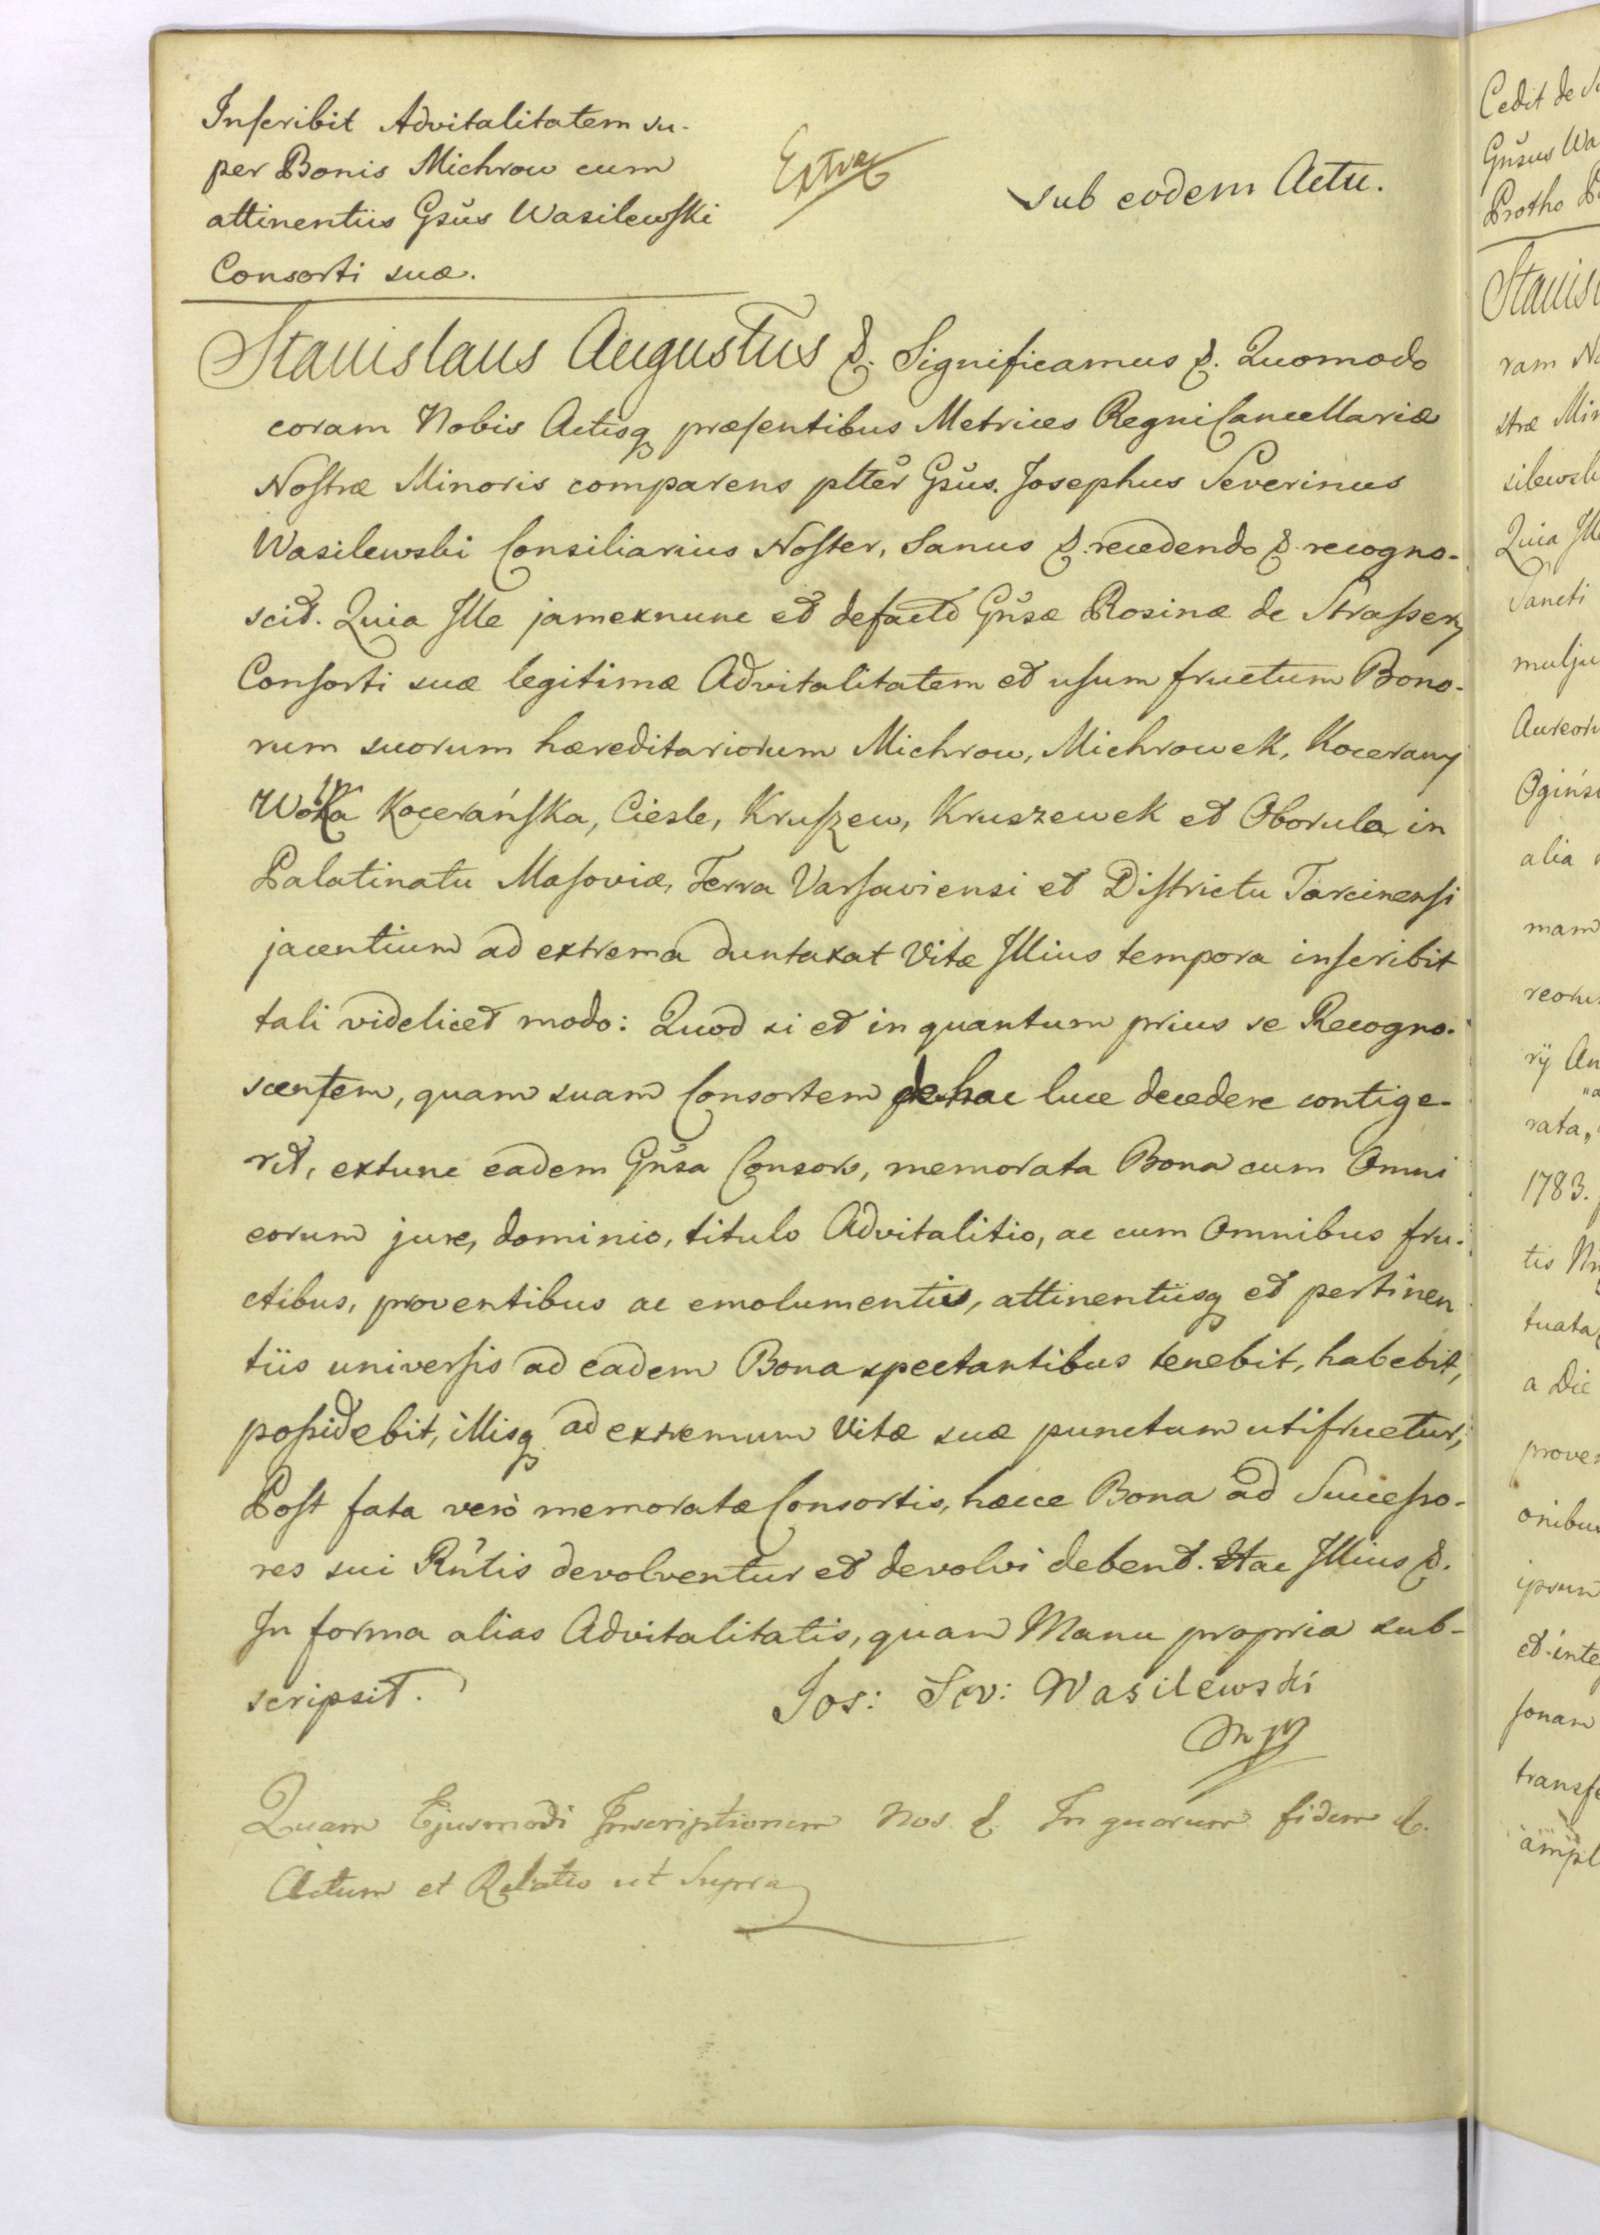 Inscribit Advitalitatem su-
per Bonis Michrow cum
attinentiis Gsus Wasilewski
Consorti suæ.
Extrad
sub eodem Actu.
Stanislaus Augustus &. Significamus &. Quomodo
coram Nobis Actisq præsentibus Metrices Regni Cancellariæ
Nostræ Minoris comparens plter Gsus. Josephus Severinus
Wasilewski Consiliarius Noster, Sanus &. recedendo &. recogno-
scit. Quia Ille jam exnunc et defacto Gnsæ Rosinæ de Strassery
Consorti suæ legitimæ Advitalitatem et usum fructum Bono-
rum suorum hæreditariorum Michrow, Michrowek, Kocerany
Wolka Kocerańska, Ciesle, Kruszew, Kruszewek et Oborula in
Palatinatu Masoviæ, Terra Varsaviensi et Districtu Tarcinensi
jacentium ad extrema duntaxat Vitæ Illius tempora inscribit
tali videlicet modo: Quod si et in quantum prius se Recogno-
scentem, quam suam Consortem de hac luce decedere contige-
rit, extunc eadem Gnsa Consors, memorata Bona cum Omni
eorum jure, dominio, titulo Advitalitio, ac cum Omnibus fru-
ctibus, proventibus ac emolumentis, attinentiisq et pertinen
tiis universis ad eadem Bona spectantibus tenebit, habebit,
possidebit, illisq ad extremum Vitæ suæ punctum utifruetur,
Post fata verò memoratæ Consortis, hæcce Bona ad Successo-
res sui Rntis devolventur et devolvi debent. Hac Illius &.
In forma alias Advitalitatis, quam Manu propria sub-
scripsit.
Jos: Sev: Wasilewski
mp
Quam Ejusmodi Inscriptionem Nos &. In quorum fidem &.
Actum et Relatio ut Supra
Cedit de
Gnsus Wa
Protho
Stanis
ram No
stræ Min
silewsk
Quia Ille
Sancti
mulju
Aureoru
Ogińs
alia
mam
reoru
rÿ An
rata,,
1783.
tis
tuata
a Die
proven
onibus
ipsum
et inte
sonam
transfe
ampl